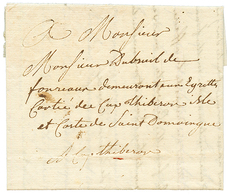 A Monsieur
Monsieur Dubreuil de
fonreaux demeurant aux Eyrottes
Cartié de Cap Thiberon Isle
et Coste de Saint Domaingue
thiberon